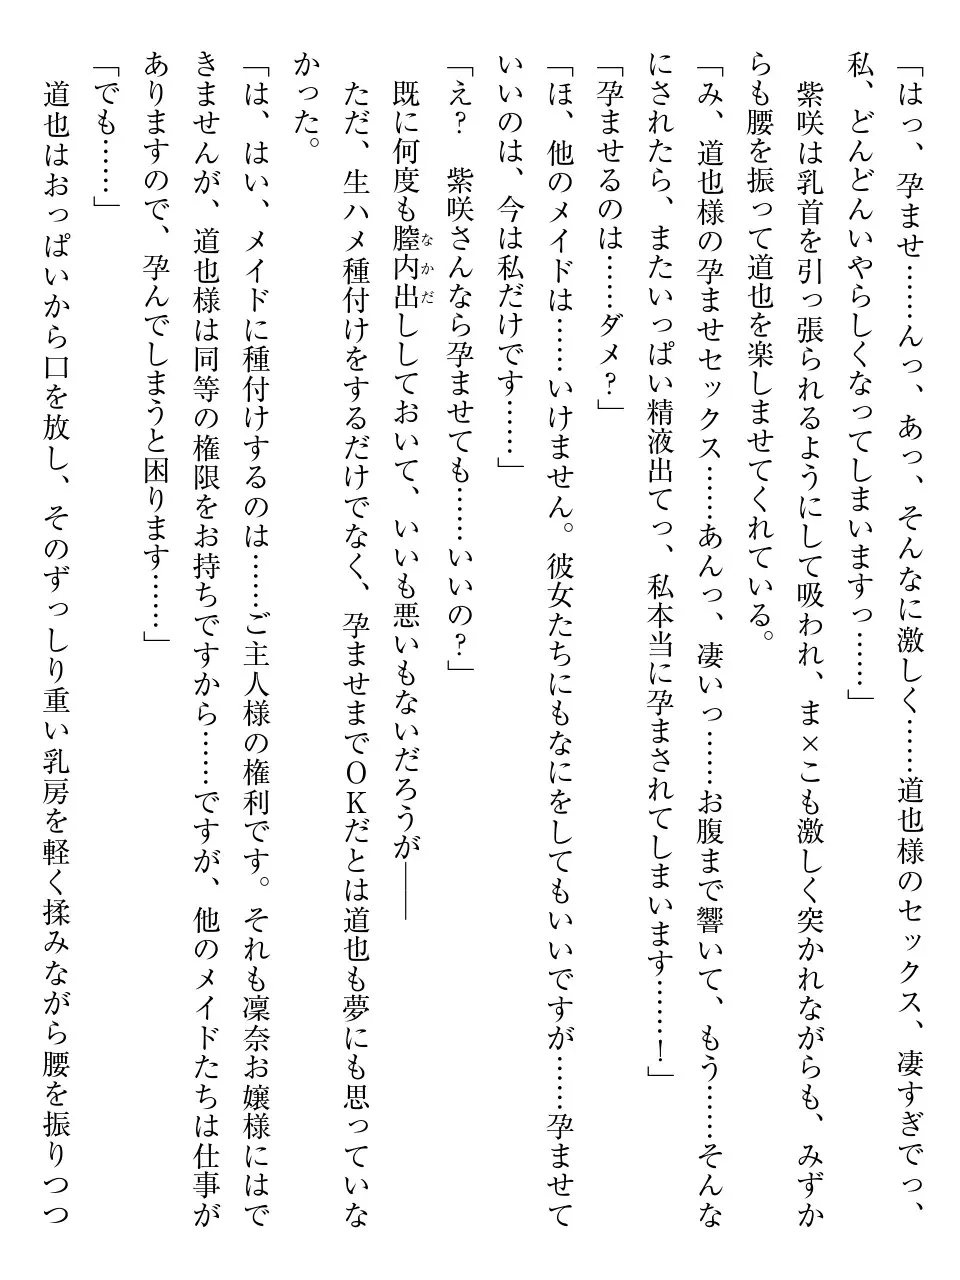 「はっ、孕ませ……んっ、あっ、そんなに激しく……道也様のセックス、凄すぎでっ、
私、どんどんいやらしくなってしまいますっ……」
紫咲は乳首を引っ張られるようにして吸われ、ま×こも激しく突かれながらも、みずか
らも腰を振って道也を楽しませてくれている。
「み、道也様の孕ませセックス……あんっ、凄いっ……お腹まで響いて、もう……そんな
にされたら、またいっぱい精液出てっ、私本当に孕まされてしまいます……！」
「孕ませるのは……ダメ？」
「ほ、他のメイドは……いけません。彼女たちにもなにをしてもいいですが……孕ませて
いいのは、今は私だけです……」
「え？　紫咲さんなら孕ませても……いいの？」
既に何度も膣内出（なかだ）ししておいて、いいも悪いもないだろうが――
ただ、生ハメ種付けをするだけでなく、孕ませまでＯＫだとは道也も夢にも思っていな
かった。
「は、はい、メイドに種付けするのは……ご主人様の権利です。それも凜奈お嬢様にはで
きませんが、道也様は同等の権限をお持ちですから……ですが、他のメイドたちは仕事が
ありますので、孕んでしまうと困ります……」
「でも……」
道也はおっぱいから口を放し、そのずっしり重い乳房を軽く揉みながら腰を振りつつ